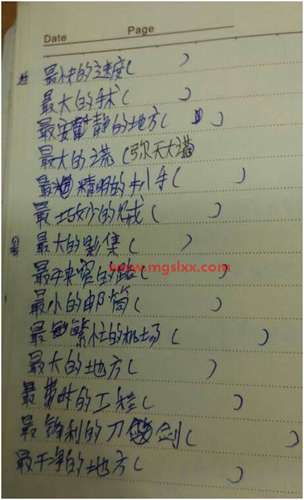 Date Page
最快的速度( )
最大的手术( )
最安静的地方( )
最大的谎(弥天大谎
最精明的扒手( )
最巧妙的贼( )
最大的影集( )
最的
www.mgslxx.com
最小的邮筒( )
最繁忙的机场( )
最大的地方( )
最费时的工程( )
最锋利的刀剑( )
最干净的地方( )